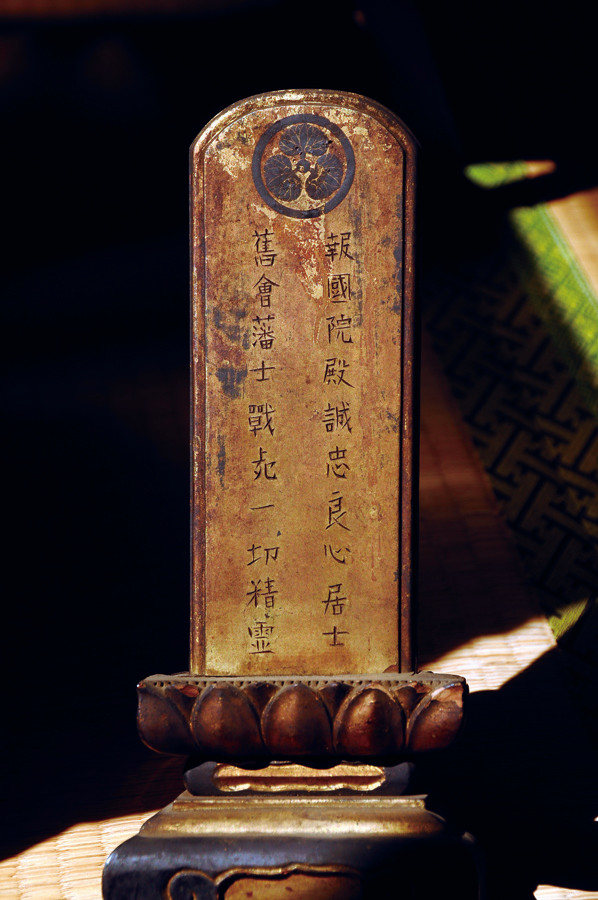 報國院殿誠忠良心居士
舊會藩士戰死一切精霊